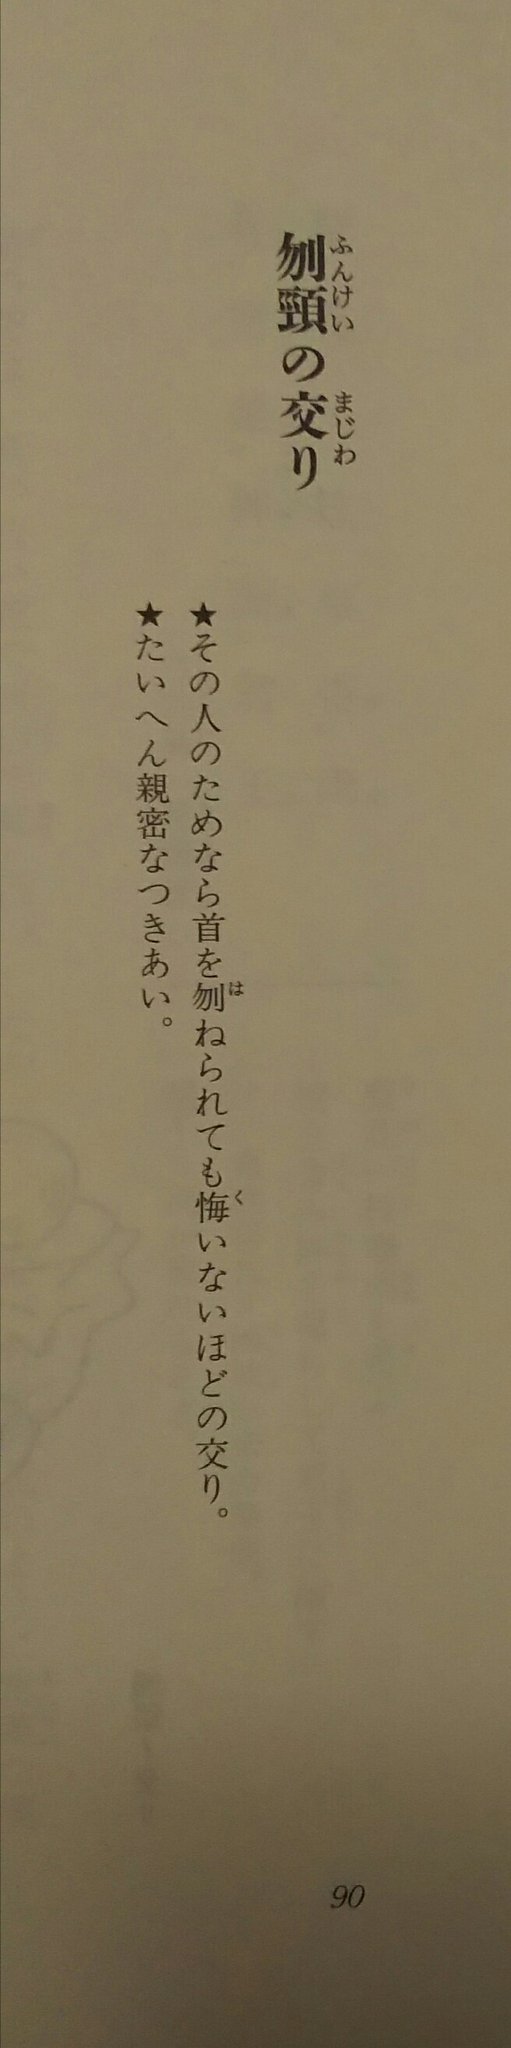 刎頸の交り
ふんけい
まじわ
★その人のためなら首を刎ねられても悔いないほどの交り。
は
く
★たいへん親密なつきあい。
90